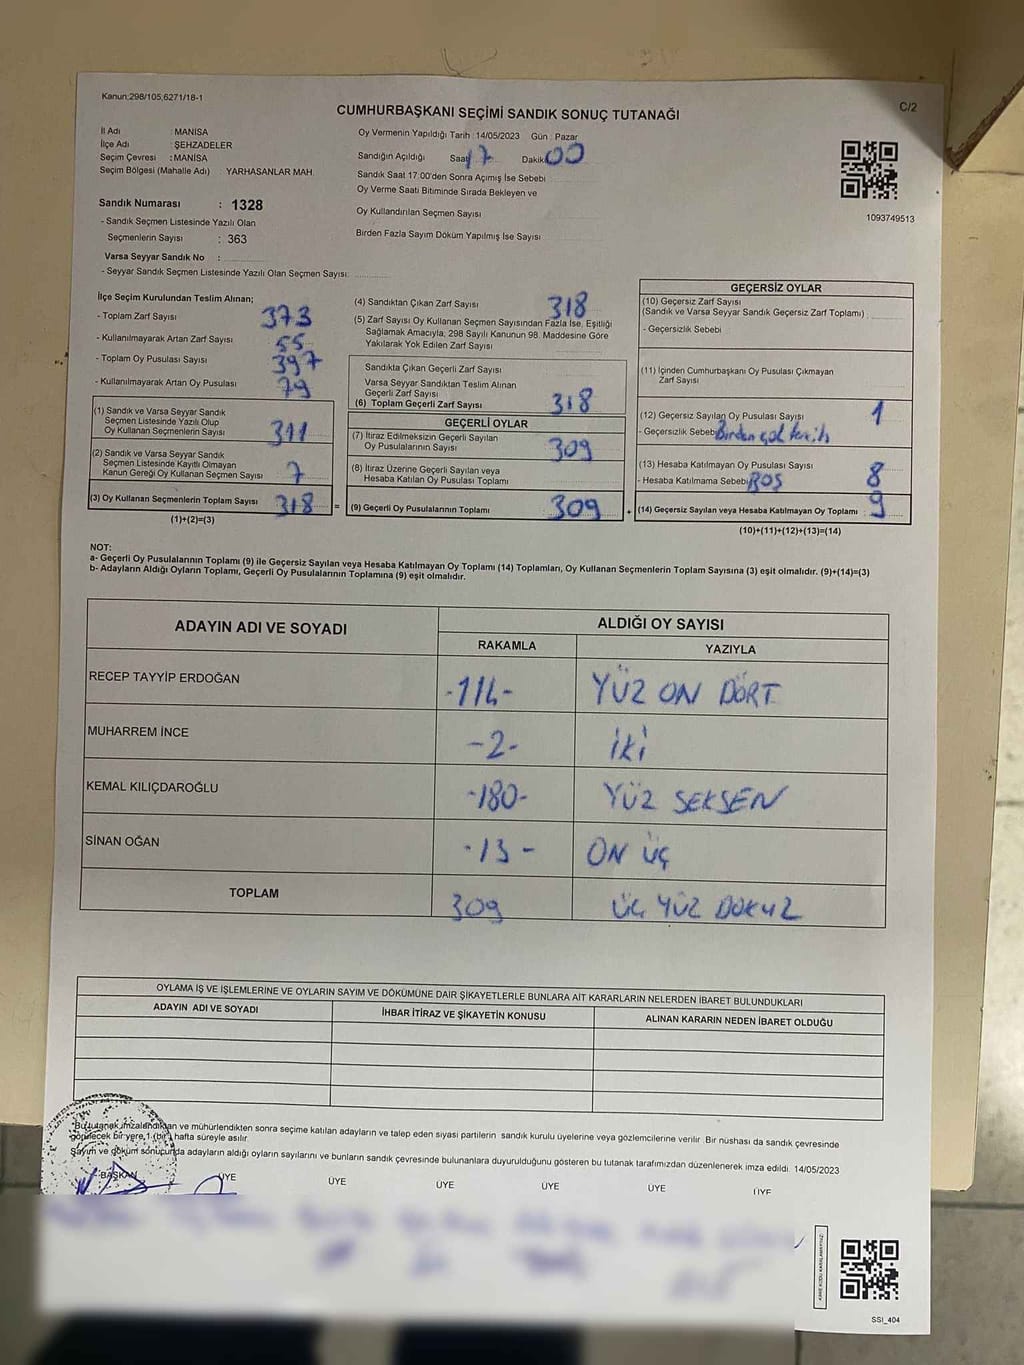 Kanun;298/105,6271/18-1
CUMHURBAŞKANI SEÇİMİ SANDIK SONUÇ TUTANAĞI
C/2
İl Adı : MANİSA
İlçe Adı : ŞEHZADELER
Seçim Çevresi : MANİSA
Seçim Bölgesi (Mahalle Adı) YARHASANLAR MAH.
Sandık Numarası : 1328
- Sandık Seçmen Listesinde Yazılı Olan
Seçmenlerin Sayısı : 363
Varsa Seyyar Sandık No :
- Seyyar Sandık Seçmen Listesinde Yazılı Olan Seçmen Sayısı:
Oy Vermenin Yapıldığı Tarih : 14/05/2023 Gün : Pazar
Sandığın Açıldığı Saat 17 Dakika 00
Sandık Saat 17:00'den Sonra Açımış İse Sebebi
Oy Verme Saati Bitiminde Sırada Bekleyen ve
Oy Kullandırılan Seçmen Sayısı
Birden Fazla Sayım Döküm Yapılmış İse Sayısı
1093749513
İlçe Seçim Kurulundan Teslim Alınan;
- Toplam Zarf Sayısı 373
- Kullanılmayarak Artan Zarf Sayısı 55
- Toplam Oy Pusulası Sayısı 397
- Kullanılmayarak Artan Oy Pusulası 79
(1) Sandık ve Varsa Seyyar Sandık
Seçmen Listesinde Yazılı Olup
Oy Kullanan Seçmenlerin Sayısı 311
(2) Sandık ve Varsa Seyyar Sandık
Seçmen Listesinde Kayıtlı Olmayan
Kanun Gereği Oy Kullanan Seçmen Sayısı 7
(3) Oy Kullanan Seçmenlerin Toplam Sayısı 318 =
(1)+(2)=(3)
(4) Sandıktan Çıkan Zarf Sayısı 318
(5) Zarf Sayısı Oy Kullanan Seçmen Sayısından Fazla İse, Eşitliği
Sağlamak Amacıyla, 298 Sayılı Kanunun 98. Maddesine Göre
Yakılarak Yok Edilen Zarf Sayısı
Sandıkta Çıkan Geçerli Zarf Sayısı
Varsa Seyyar Sandıktan Teslim Alınan
Geçerli Zarf Sayısı
(6) Toplam Geçerli Zarf Sayısı 318
GEÇERLİ OYLAR
(7) İtiraz Edilmeksizin Geçerli Sayılan
Oy Pusulalarının Sayısı 309
(8) İtiraz Üzerine Geçerli Sayılan veya
Hesaba Katılan Oy Pusulası Toplamı
(9) Geçerli Oy Pusulalarının Toplamı 309 +
GEÇERSİZ OYLAR
(10) Geçersiz Zarf Sayısı
(Sandık ve Varsa Seyyar Sandık Geçersiz Zarf Toplamı)
- Geçersizlik Sebebi
(11) İçinden Cumhurbaşkanı Oy Pusulası Çıkmayan
Zarf Sayısı
(12) Geçersiz Sayılan Oy Pusulası Sayısı 1
- Geçersizlik Sebebi Birden çok tercih
(13) Hesaba Katılmayan Oy Pusulası Sayısı 8
- Hesaba Katılmama Sebebi BOŞ
(14) Geçersiz Sayılan veya Hesaba Katılmayan Oy Toplamı : 9
(10)+(11)+(12)+(13)=(14)
NOT:
a- Geçerli Oy Pusulalarının Toplamı (9) ile Geçersiz Sayılan veya Hesaba Katılmayan Oy Toplamı (14) Toplamları, Oy Kullanan Seçmenlerin Toplam Sayısına (3) eşit olmalıdır. (9)+(14)=(3)
b- Adayların Aldığı Oyların Toplamı, Geçerli Oy Pusulalarının Toplamına (9) eşit olmalıdır.
ADAYIN ADI VE SOYADI
ALDIĞI OY SAYISI
RAKAMLA YAZIYLA
RECEP TAYYİP ERDOĞAN -114- YÜZ ON DÖRT
MUHARREM İNCE -2- İKİ
KEMAL KILIÇDAROĞLU -180- YÜZ SEKSEN
SİNAN OĞAN -13- ON ÜÇ
TOPLAM 309 ÜÇ YÜZ DOKUZ
OYLAMA İŞ VE İŞLEMLERİNE VE OYLARIN SAYIM VE DÖKÜMÜNE DAİR ŞİKAYETLERLE BUNLARA AİT KARARLARIN NELERDEN İBARET BULUNDUKLARI
ADAYIN ADI VE SOYADI İHBAR İTİRAZ VE ŞİKAYETİN KONUSU ALINAN KARARIN NEDEN İBARET OLDUĞU
Bu tutanak imzalandıktan ve mühürlendikten sonra seçime katılan adayların ve talep eden siyasi partilerin sandık kurulu üyelerine veya gözlemcilerine verilir. Bir nüshası da sandık çevresinde
görülecek bir yere 1 (bir) hafta süreyle asılır.
Sayım ve döküm sonucunda adayların aldığı oyların sayılarını ve bunların sandık çevresinde bulunanlara duyurulduğunu gösteren bu tutanak tarafımızdan düzenlenerek imza edildi. 14/05/2023
BAŞKAN ÜYE ÜYE ÜYE ÜYE ÜYE ÜYE
SSI_404